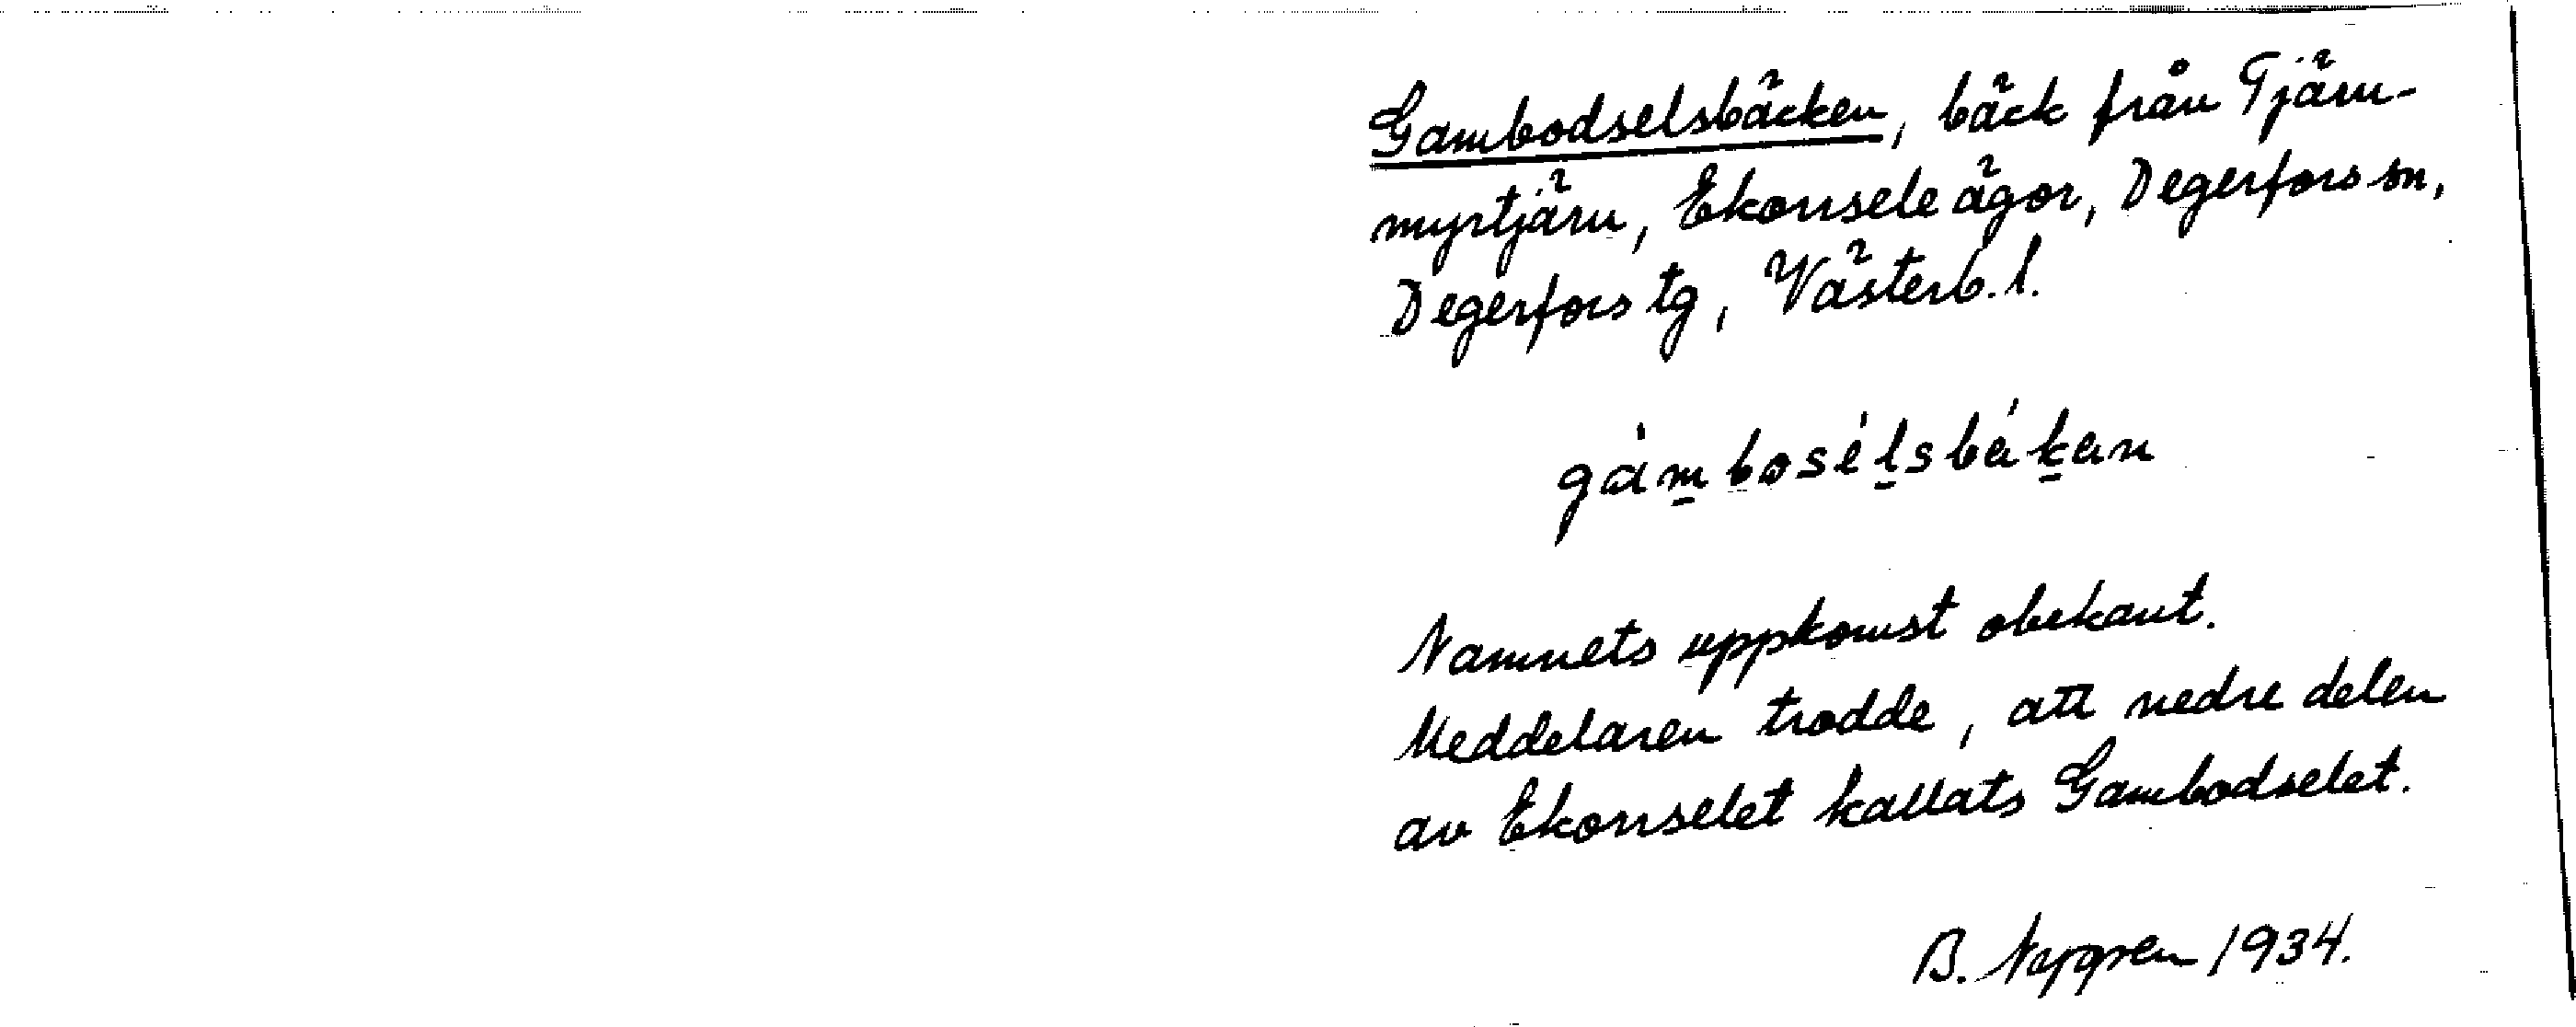 Gambodselsbäcken, bäck från Tjärn-
myrtjärn, Ekorrsele ägor, Degerfors sn,
Degerfors tg, Västerb. l.
gámbosélsbékan
Namnets uppkomst obekant.
Meddelaren trodde, att nedre delen
av Ekorrselet kallats Gambodselet.
B. 1934.